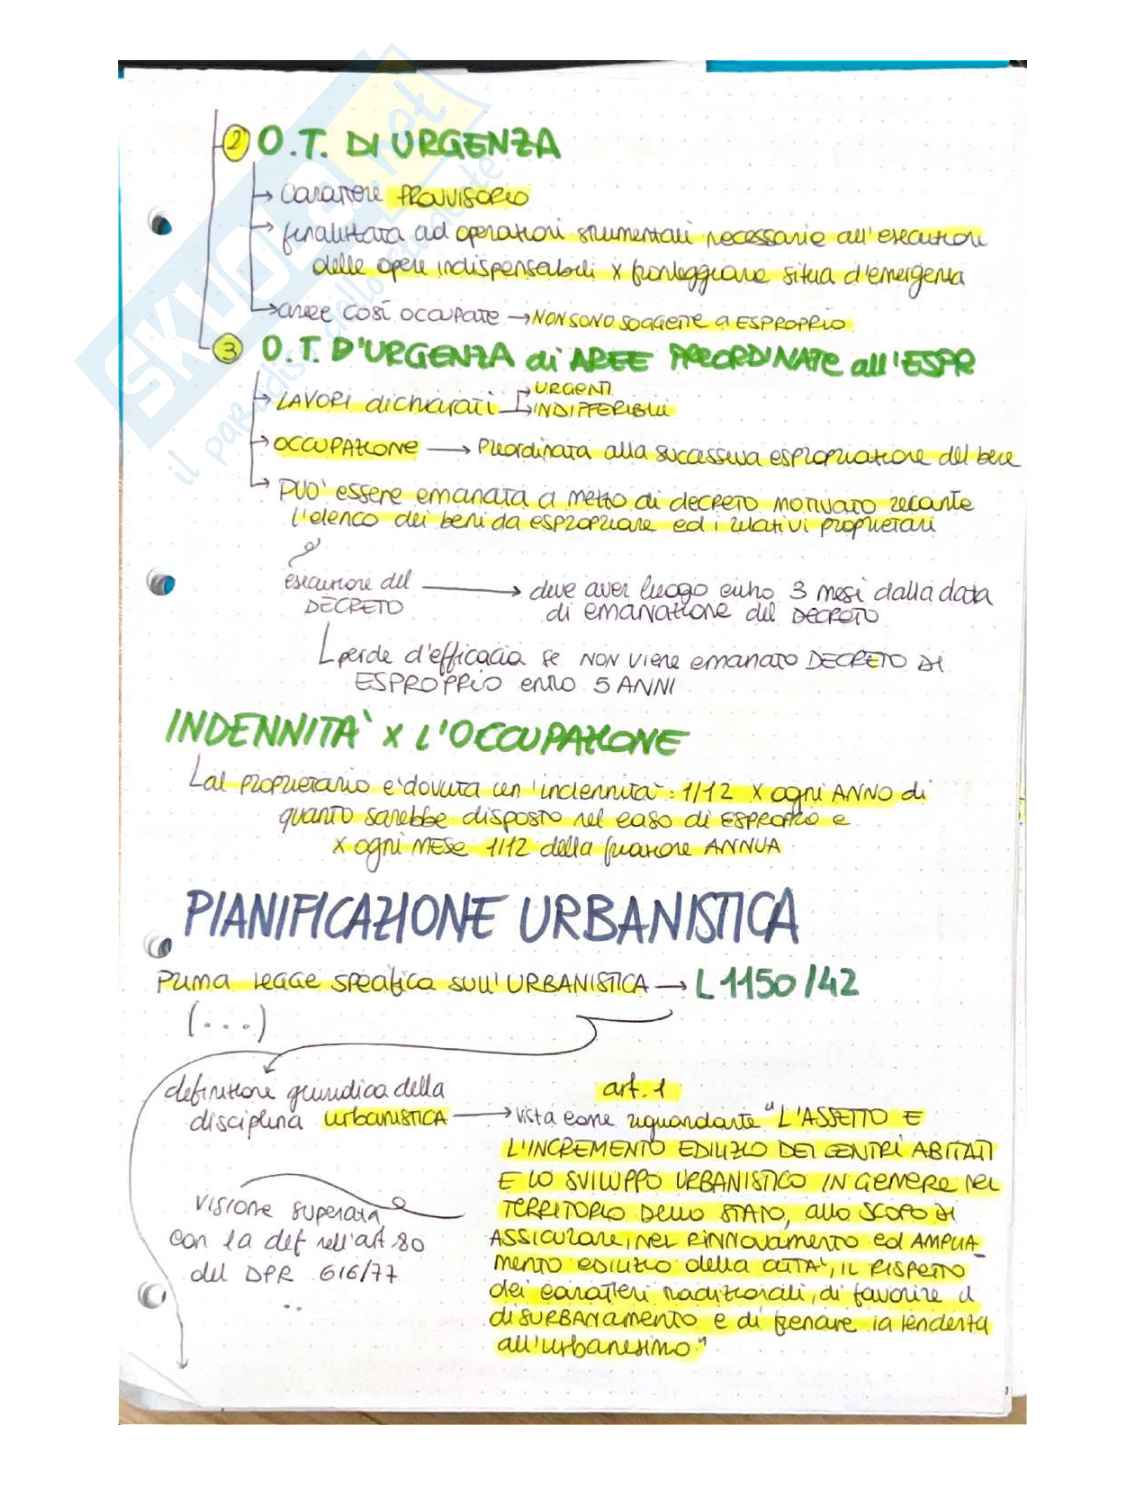 ② O.T. DI URGENZA
→ Carattere PROVVISORIO
→ finalizzata ad operazioni strumentali necessarie all'esecuzioni
delle opere indispensabili x fronteggiare situa d'emergenza
→ aree così occupate → NON SONO SOGGETTE A ESPROPRIO
③ O.T. D'URGENZA di AREE PREORDINATE all'ESPR
→ LAVORI dichiarati → URGENTI
→ INDIFFERIBILI
→ OCCUPAZIONE → Preordinata alla successiva espropriazione del bene
→ PUO' essere emanata a mezzo di decreto motivato recante
l'elenco dei beni da espropriare ed i relativi proprietari
esecuzione del DECRETO → deve aver luogo entro 3 mesi dalla data
di emanazione del DECRETO
perde d'efficacia se NON viene emanato DECRETO DI
ESPROPPRIO entro 5 ANNI
INDENNITA' x L'OCCUPAZIONE
al proprietario è dovuta un'indennità: 1/12 x ogni ANNO di
quanto sarebbe disposto nel caso di ESPROPRIO e
x ogni MESE 1/12 della frazione ANNUA
PIANIFICAZIONE URBANISTICA
Prima legge specifica sull'URBANISTICA → L 1150/42
(...)
definizione giuridica della
disciplina urbanistica →
art. 1
vista come riguardante "L'ASSETTO E
L'INCREMENTO EDILIZIO DEI CENTRI ABITATI
E LO SVILUPPO URBANISTICO IN GENERE NEL
TERRITORIO DELLO STATO, allo SCOPO DI
ASSICURARE, NEL RINNOVAMENTO ed AMPLIA-
MENTO EDILIZIO della CITTA', IL RISPETTO
dei caratteri tradizionali, di favorire il
disurbanamento e di frenare la tendenza
all'urbanesimo"
visione superata
con la def nell'art. 80
del DPR 616/77
..
SKUOLA.net
il paradiso dello studente